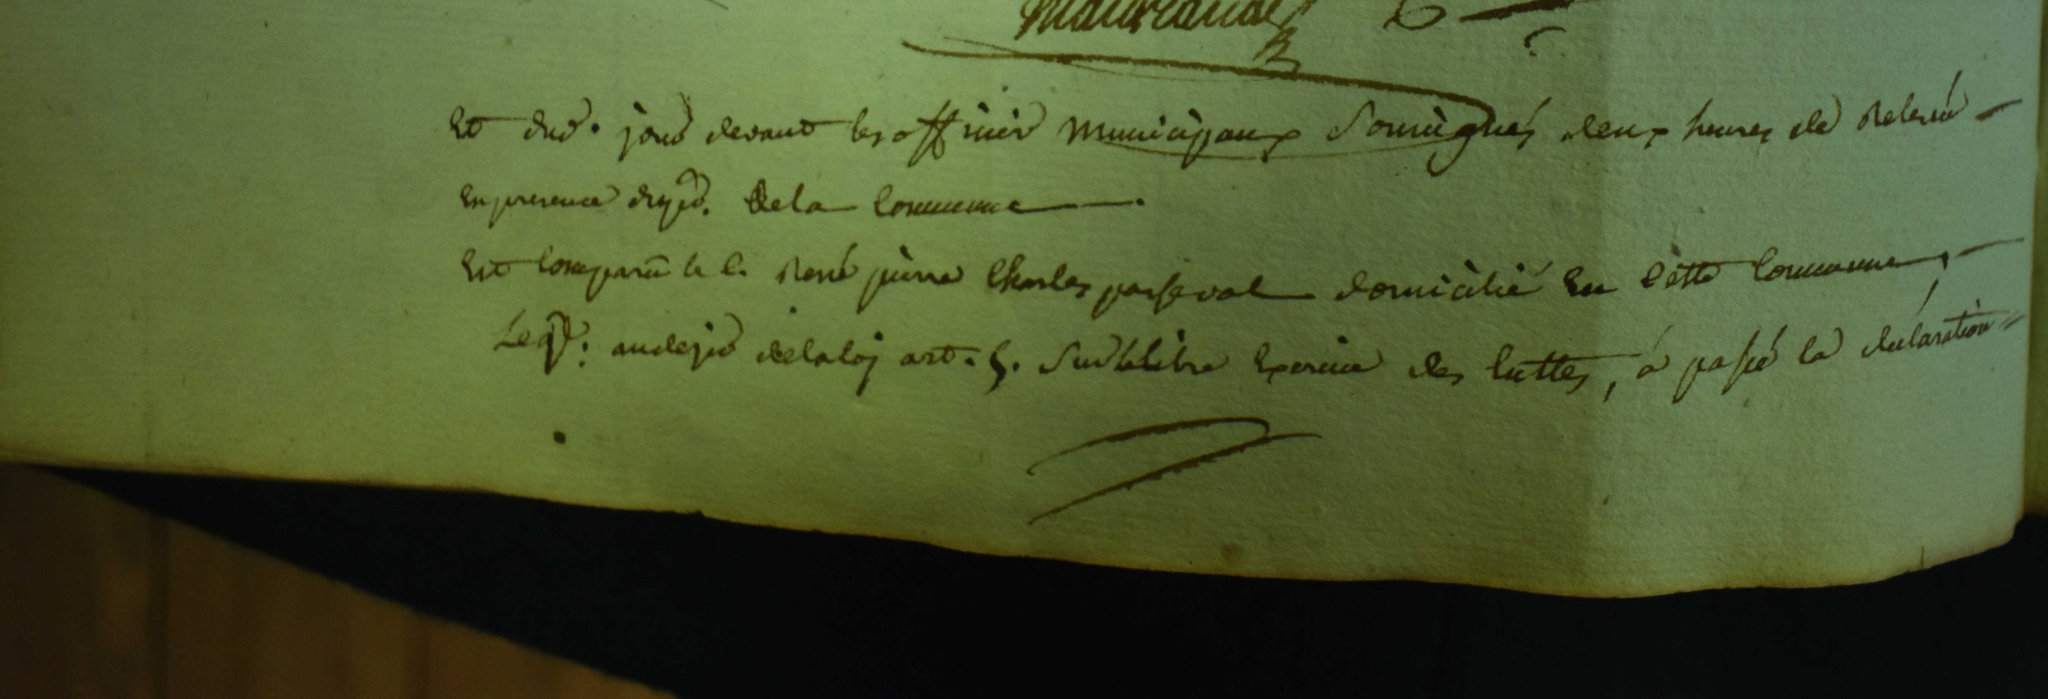 Et dud. jour devant les officier municipaux soussignés deux heures de relevée
en presence du de la commune
Est comparu le C. René pierre Charles parseval domicilié en cette commune,
Leql. au de la loi art. 5. Sur le libre Exercice des Cultes, a passé la déclaration